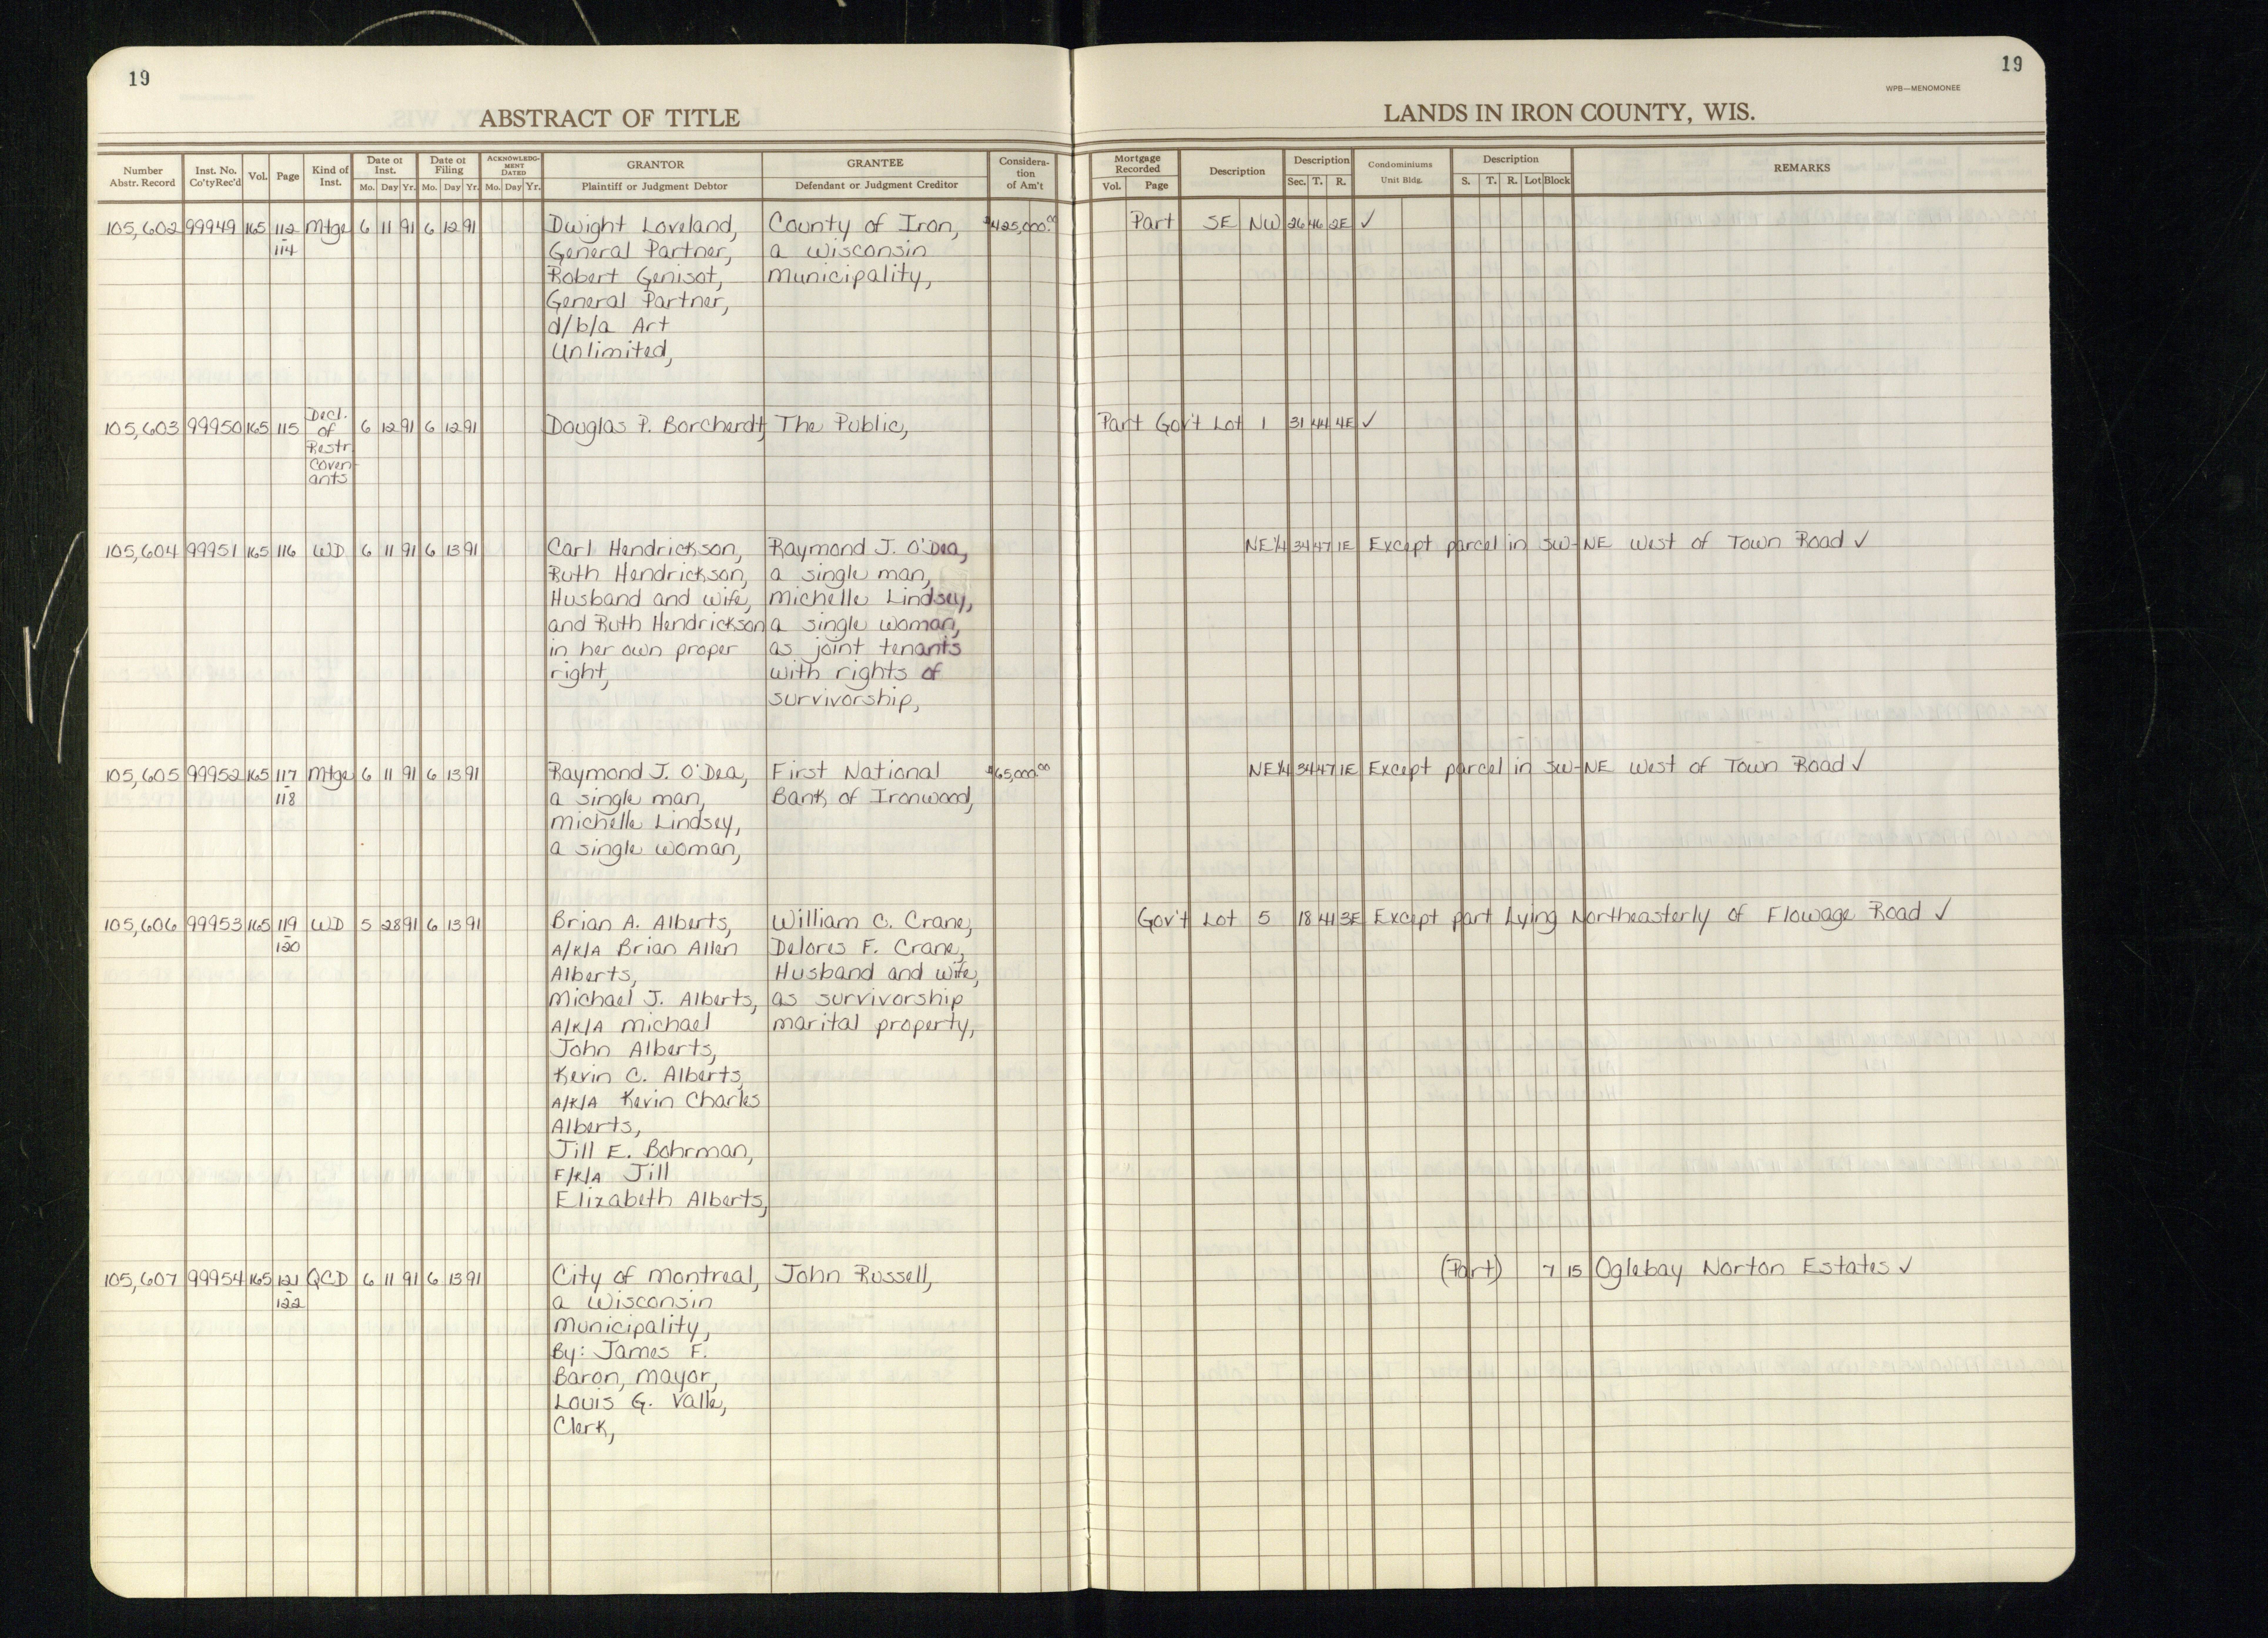 19
19
WPB—MENOMONEE
ABSTRACT OF TITLE
LANDS IN IRON COUNTY, WIS.
Number Abstr. Record | Inst. No. Co'ty Rec'd | Vol. | Page | Kind of Inst. | Date of Inst. Mo. Day Yr. | Date of Filing Mo. Day Yr. | ACKNOWLEDGMENT DATED Mo. Day Yr. | GRANTOR Plaintiff or Judgment Debtor | GRANTEE Defendant or Judgment Creditor | Consideration of Am't | Mortgage Recorded Vol. Page | Description | Description Sec. T. R. | Condominiums Unit Bldg. | Description S. T. R. Lot Block | REMARKS
105,602 99949 165 112 Mtge 6 11 91 6 12 91 Dwight Loveland, County of Iron, $425,000.00 Part SE NW 26 46 2E ✓
-114 General Partner, a Wisconsin
Robert Genisot, Municipality,
General Partner,
d/b/a Art
Unlimited,
105,603 99950 165 115 Decl. 6 12 91 6 12 91 Douglas P. Borcherdt, The Public, Part Gov't Lot 1 31 44 4E ✓
of
Restr.
Coven-
ants
105,604 99951 165 116 WD 6 11 91 6 13 91 Carl Hendrickson, Raymond J. O'Dea, NE¼ 34 47 1E Except parcel in SW-NE West of Town Road ✓
Ruth Hendrickson, a single man,
Husband and wife, Michelle Lindsey,
and Ruth Hendrickson a single woman,
in her own proper as joint tenants
right, with rights of
survivorship,
105,605 99952 165 117 Mtge 6 11 91 6 13 91 Raymond J. O'Dea, First National $65,000.00 NE¼ 34 47 1E Except parcel in SW-NE West of Town Road ✓
-118 a single man, Bank of Ironwood,
Michelle Lindsey,
a single woman,
105,606 99953 165 119 WD 5 28 91 6 13 91 Brian A. Alberts, William C. Crane, Gov't Lot 5 18 41 3E Except part Lying Northeasterly of Flowage Road ✓
-120 A/K/A Brian Allen Delores F. Crane,
Alberts, Husband and wife,
Michael J. Alberts, as survivorship
A/K/A Michael marital property,
John Alberts,
Kevin C. Alberts,
A/K/A Kevin Charles
Alberts,
Jill E. Bohrman,
F/K/A Jill
Elizabeth Alberts,
105,607 99954 165 121 QCD 6 11 91 6 13 91 City of Montreal, John Russell, (Part) 7 15 Oglebay Norton Estates ✓
-122 a Wisconsin
Municipality,
By: James F.
Baron, Mayor,
Louis G. Valle,
Clerk,